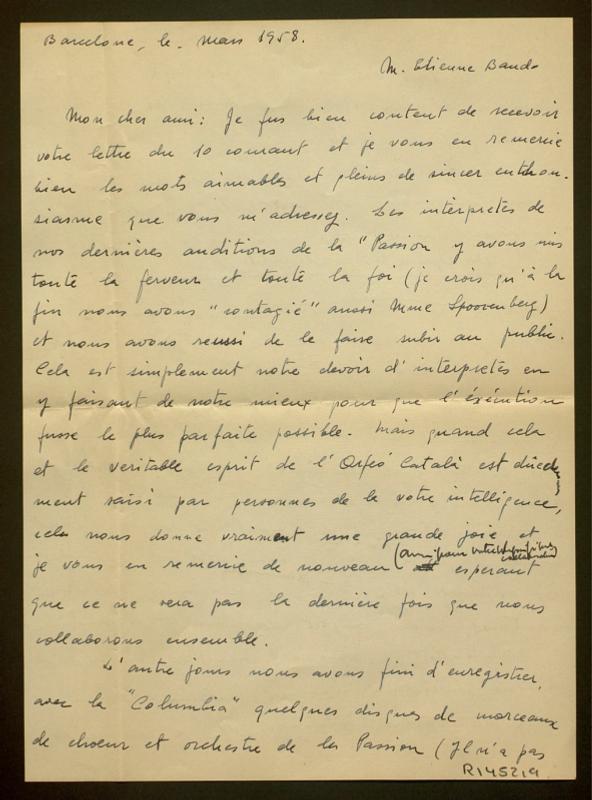 Barcelone, le. mars 1958.
M. Etienne Baud.
Mon cher ami: Je fus bien content de recevoir
votre lettre du 10 courant et je vous en remercie
bien les mots aimables et pleins de sincer enthou-
siasme que vous m'adressez. Les interpretes de
nos dernières auditions de la "Passion y avons mis
toute la ferveur et toute la foi (je crois qu'à la
fin nous avons "contagié" aussi Mme Spoorenberg)
et nous avons reussi de le faire subir au public.
Cela est simplement notre devoir d'interpretes en
y faisant de notre mieux pour que l'éxécution
fusse le plus parfaite possible. Mais quand cela
et le veritable esprit de l'Orfeó Català est directe-
ment saisi par personnes de la votre intelligence,
cela nous donne vraiment une grande joie et
je vous en remercie de nouveau (aussi pour votre collaboration) esperant
que ce ne sera pas la dernière fois que nous
collaborons ensemble.
L'autre jours nous avons fini d'enregistrer,
avec la "Columbia" quelques disques de morceaux
de choeur et orchestre de la Passion (Il n'a pas
R.1452,9